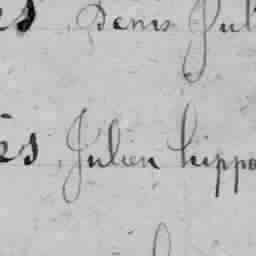 es Denis Jul
es Julien hippo